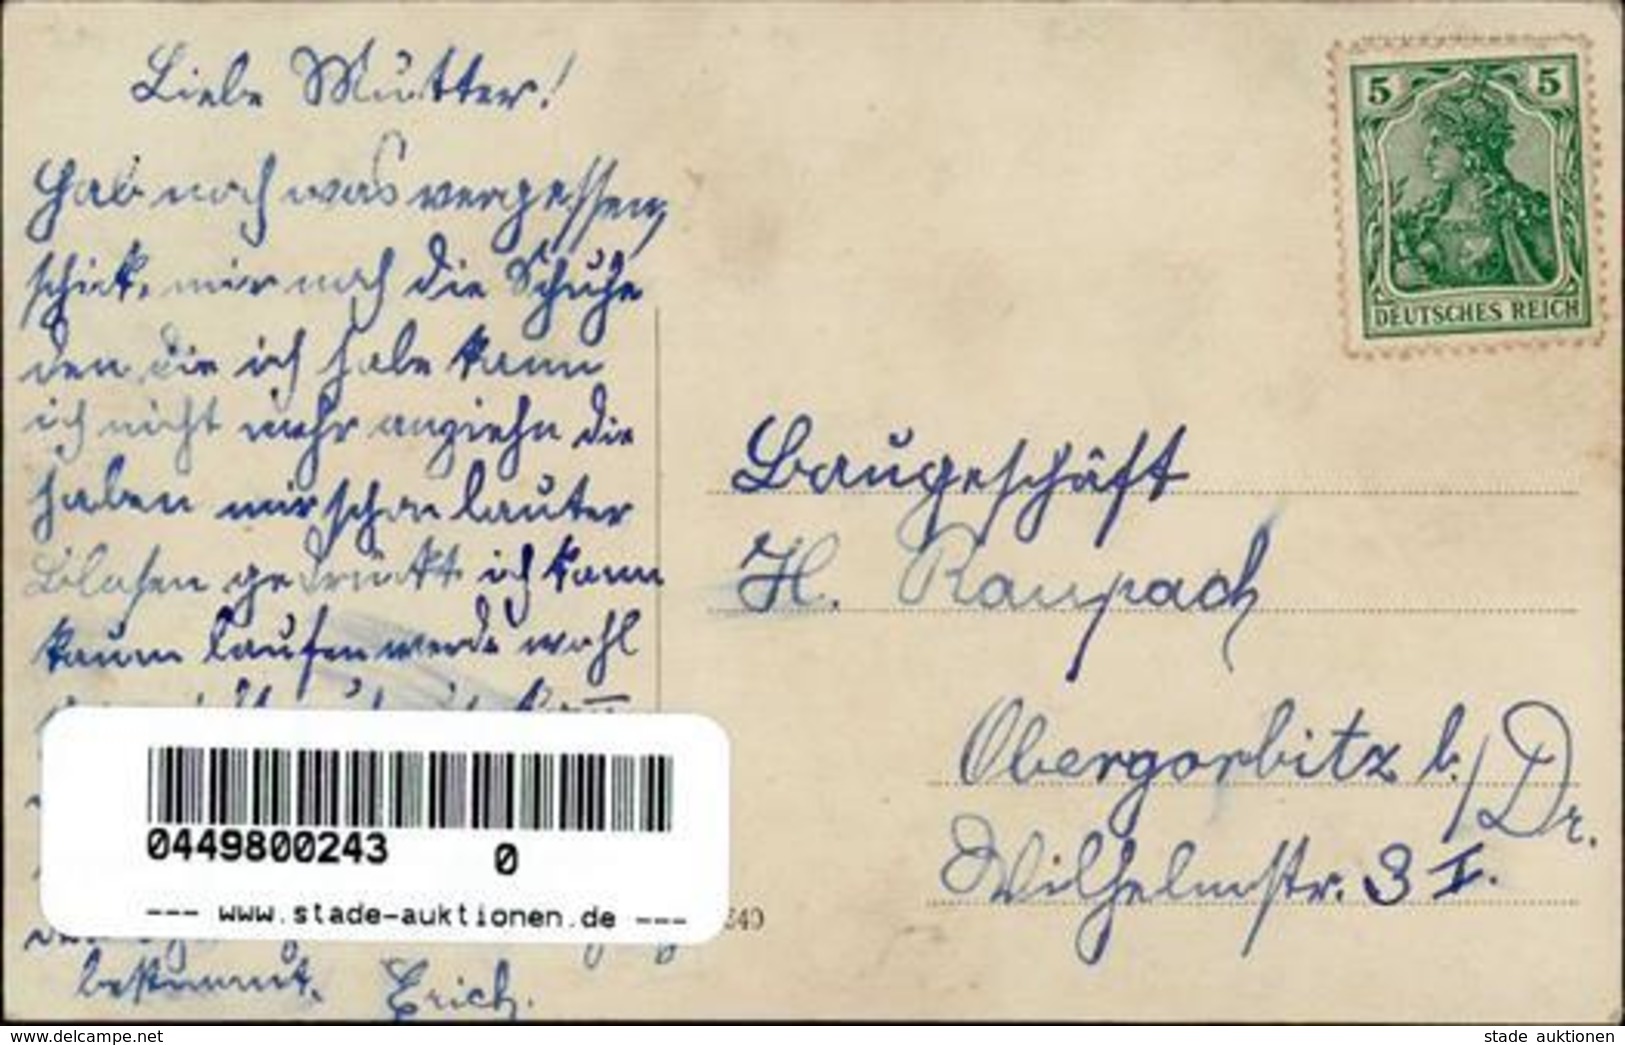 Liebe Mutter!
Hab noch was vergessen,
schick. mir noch die Schuhe
den die ich habe kann
ich nicht mehr anziehn die
haben mir schon lauter
Blasen gedrückt ich kann
kaum laufen werde wohl
bestimmt. Erich.
5 5
DEUTSCHES REICH
Baugeschäft
H. Raupach
Obergorbitz b./Dr.
Wilhelmstr. 3 I.
0449800243 0
--- www.stade-auktionen.de ---
delcampe.net
stade auktionen